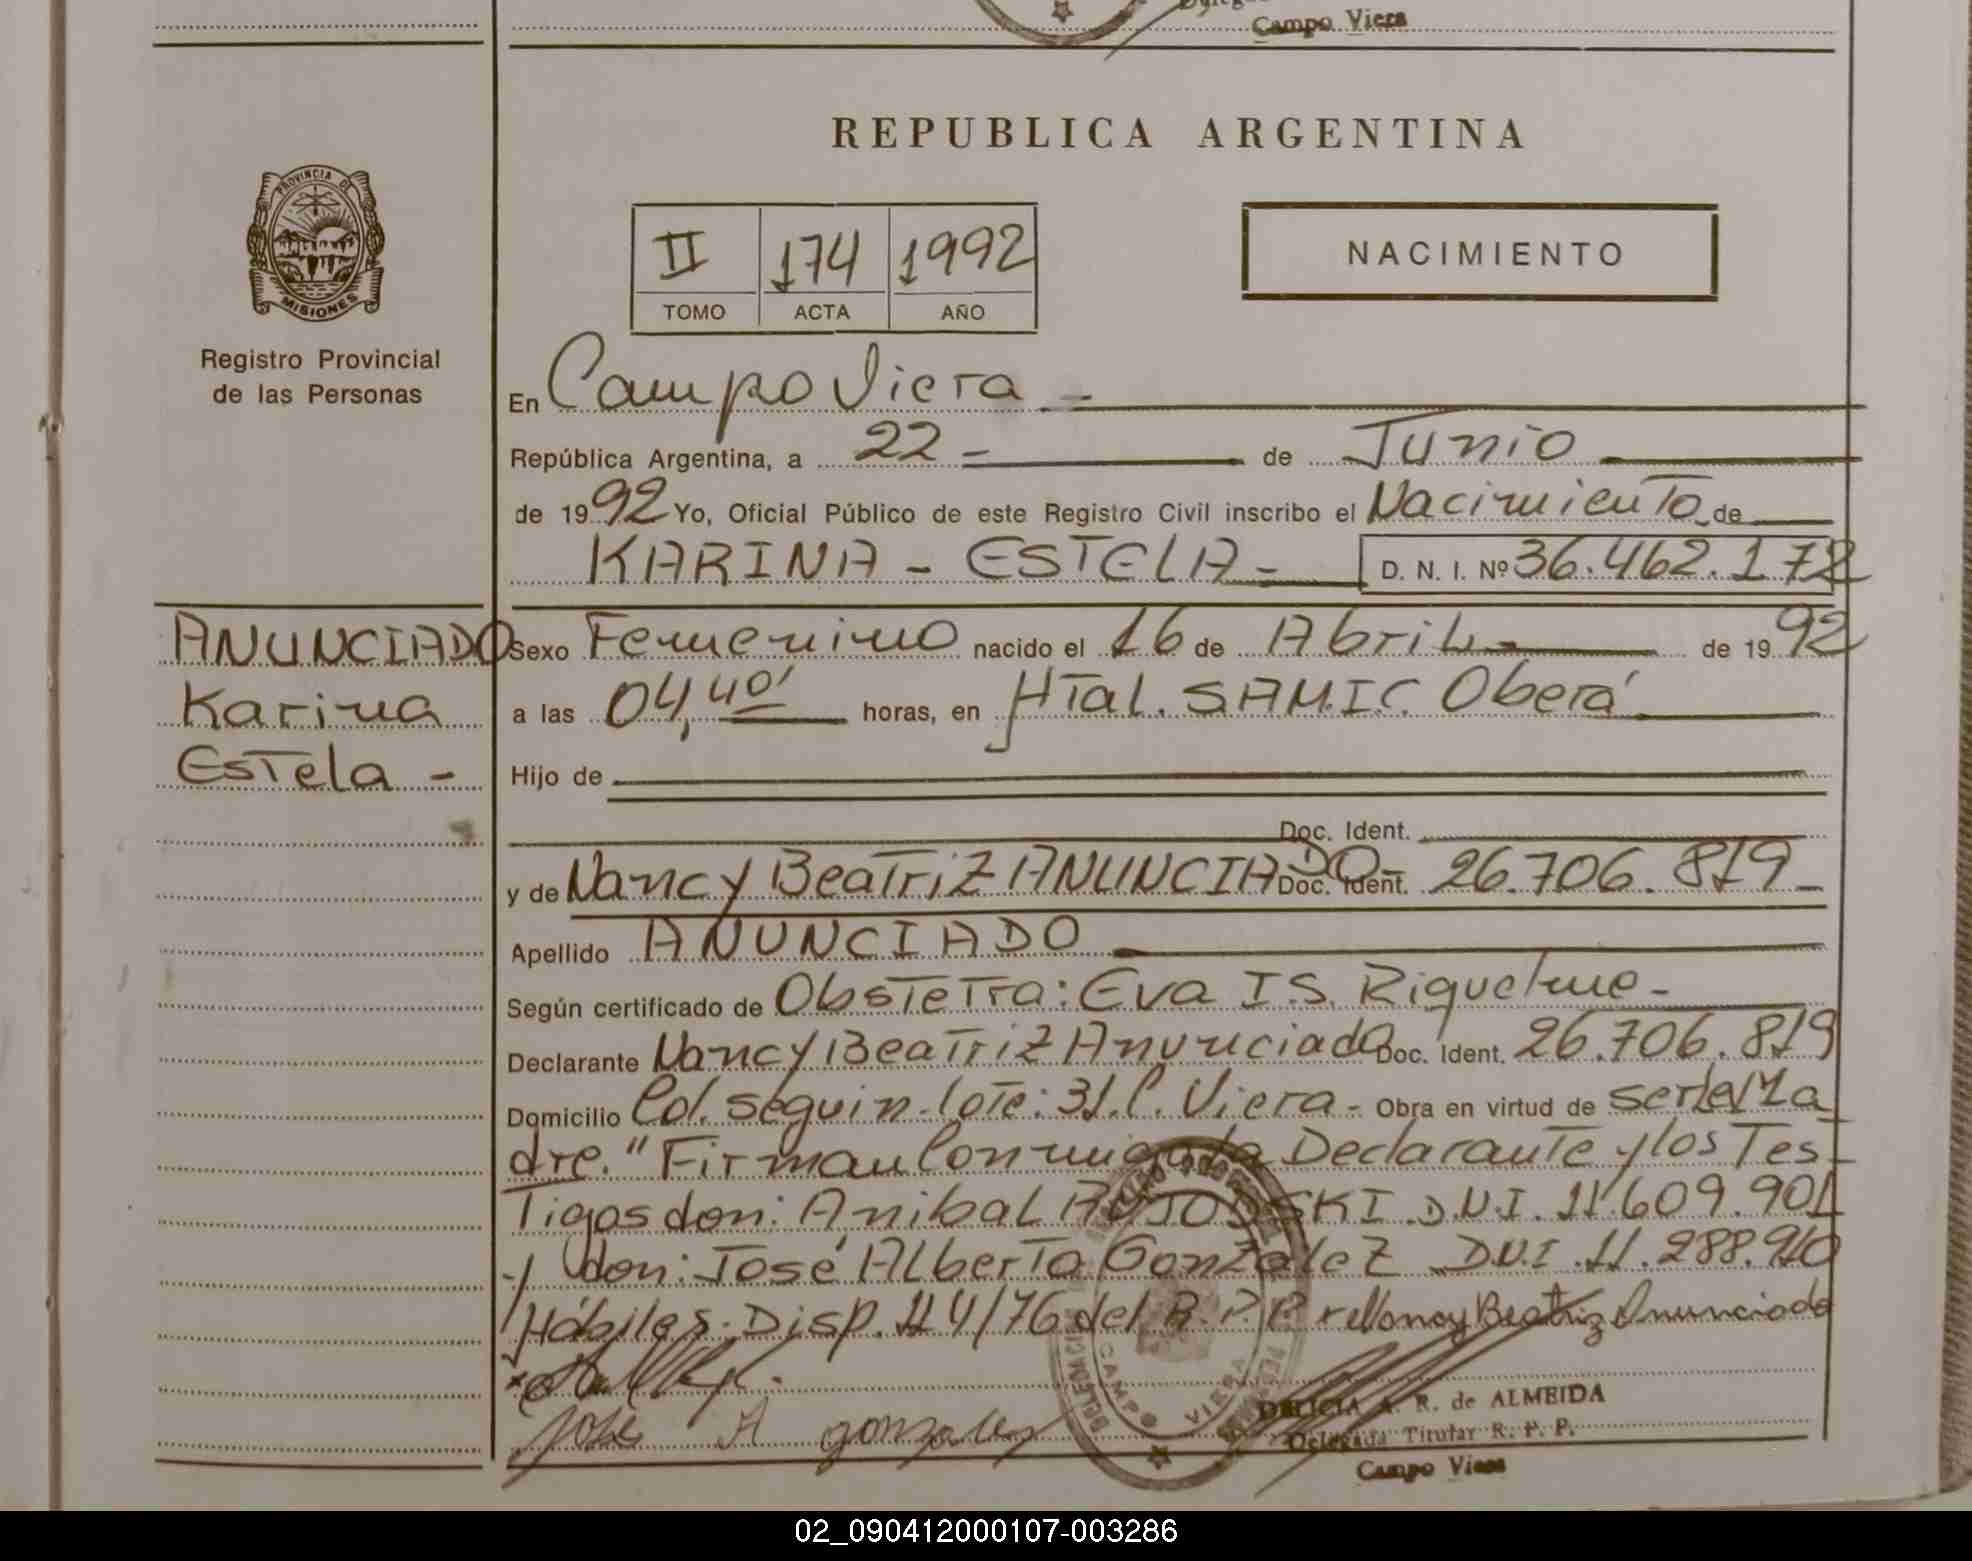 Campo Viera
PROVINCIA DE
MISIONES
Registro Provincial
de las Personas
REPUBLICA ARGENTINA
II 174 1992
TOMO ACTA AÑO
NACIMIENTO
En Campo Viera -
República Argentina, a 22 - de Junio
de 1992 Yo, Oficial Público de este Registro Civil inscribo el Nacimiento de
KARINA - ESTELA - D. N. I. Nº 36.462.172
ANUNCIADO
Karina
Estela -
Sexo Femenino nacido el 16 de Abril de 1992
a las 04,40' horas, en Htal. S.A.M.I.C. Oberá
Hijo de
Doc. Ident.
y de Nancy Beatriz ANUNCIADO - Doc. Ident. 26.706.819 -
Apellido ANUNCIADO
Según certificado de Obstetra: Eva I.S. Riquelme -
Declarante Nancy Beatriz Anunciado Doc. Ident. 26.706.819
Domicilio Col. seguin. lote: 31. C. Viera - Obra en virtud de ser la Ma
dre. "Firman Conmigo la Declarante y los Tes-
tigos don: Anibal D.N.I. 11.609.901
y don: José Alberto Gonzalez D.N.I. 11.288.910
Hábiles. Disp. 114/76 del R.P.P. Nancy Beatriz Anunciado
José A gonzalez
CAMPO VIERA
DELICIA A. R. de ALMEIDA
Delegada Titular R. P. P.
Campo Viera
02_090412000107-003286